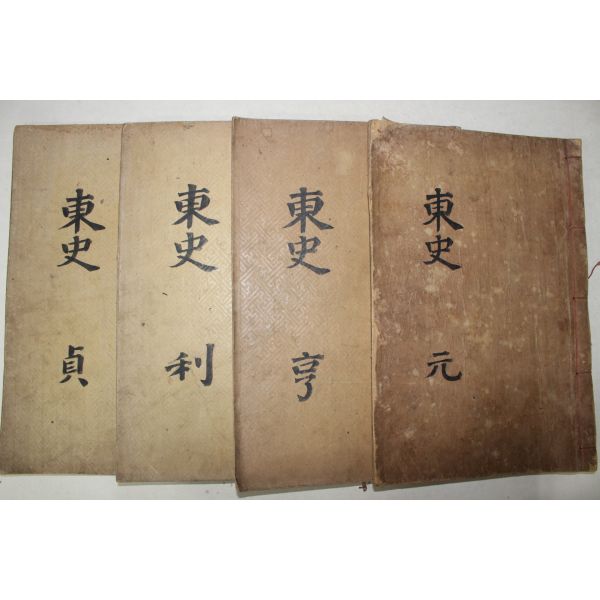 東史 元
東史 亨
東史 利
東史 貞